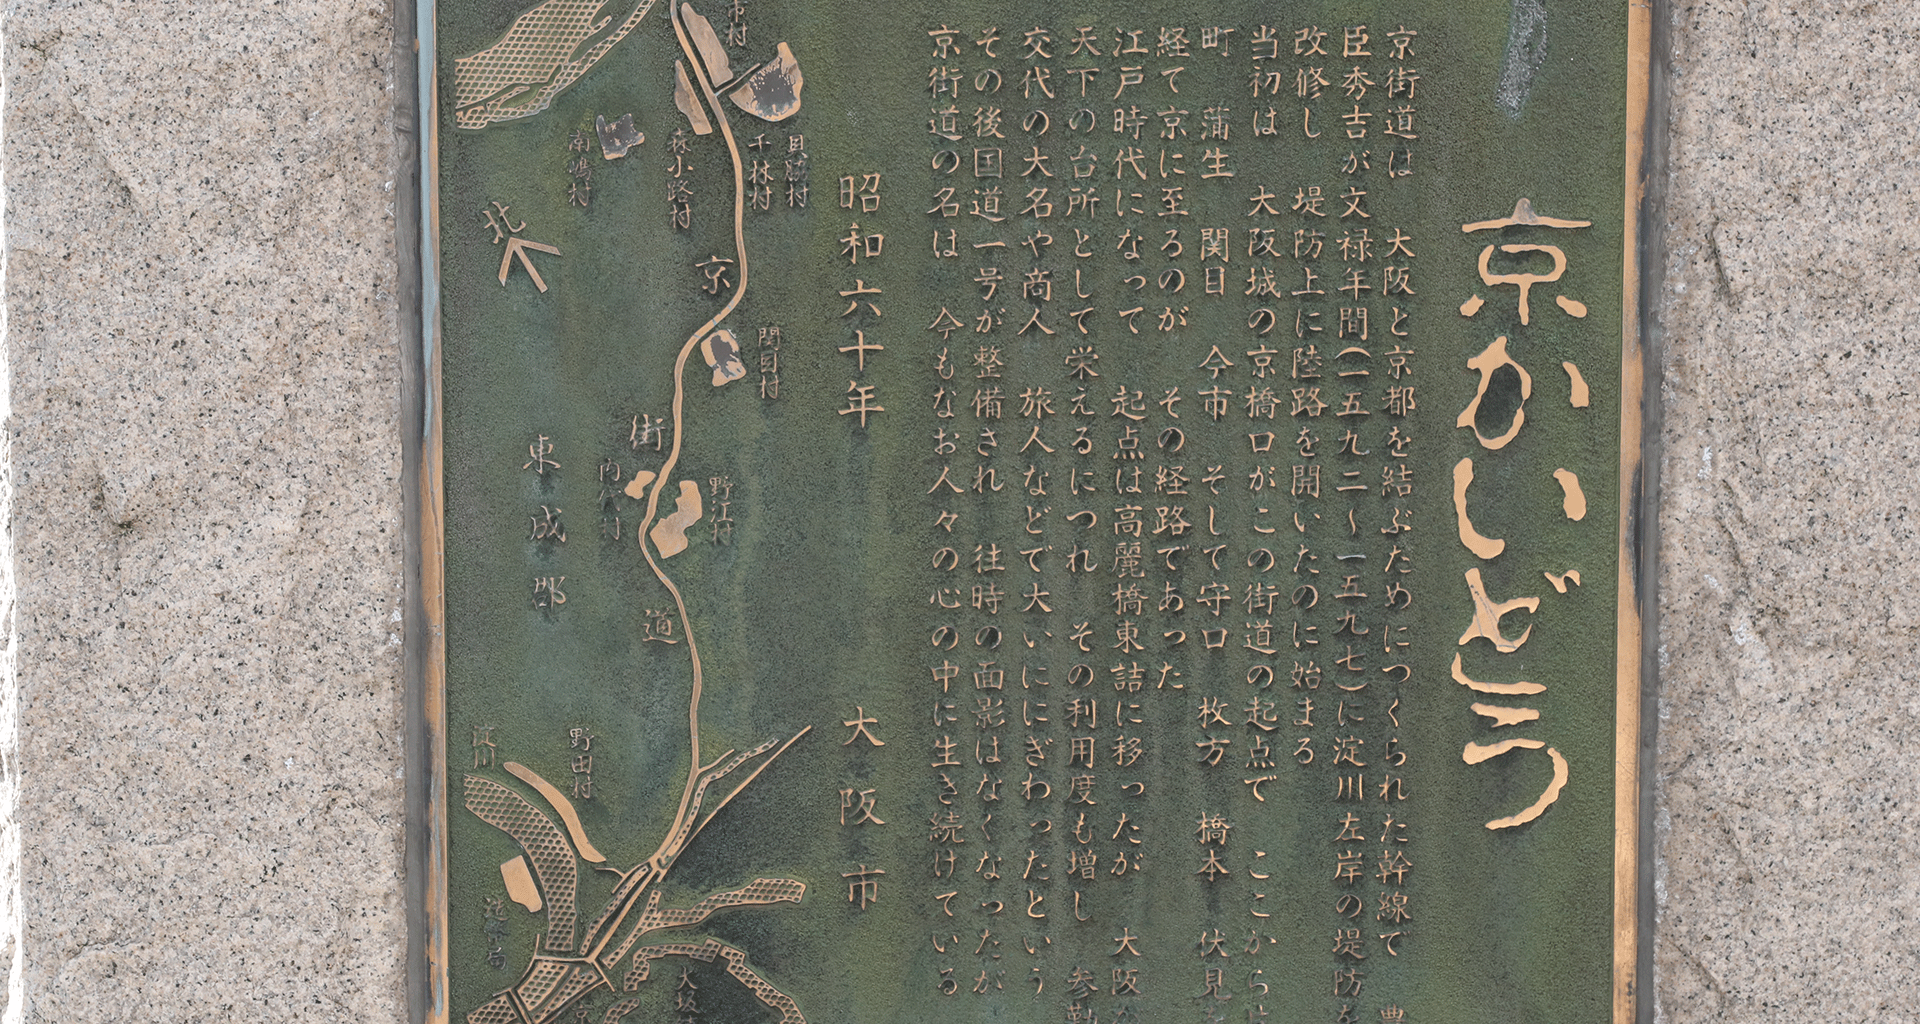 京かいどう
京街道は 大阪と京都を結ぶためにつくられた幹線で 豊
臣秀吉が文禄年間(一五九二~一五九七)に淀川左岸の堤防を
改修し 堤防上に陸路を開いたのに始まる
当初は 大阪城の京橋口がこの街道の起点で ここからは
町 蒲生 関目 今市 そして守口 枚方 橋本 伏見を
経て京に至るのが その経路であった
江戸時代になって 起点は高麗橋東詰に移ったが 大阪が
天下の台所として栄えるにつれ その利用度も増し 参勤
交代の大名や商人 旅人などで大いににぎわったという
その後国道一号が整備され 往時の面影はなくなったが
京街道の名は 今もなお人々の心の中に生き続けている
昭和六十年 大阪市
市村
貝脇村
千林村
森小路村
南嶋村
北
京
関目村
街
野江村
内代村
東成郡
道
野田村
淀川
造幣局
大坂